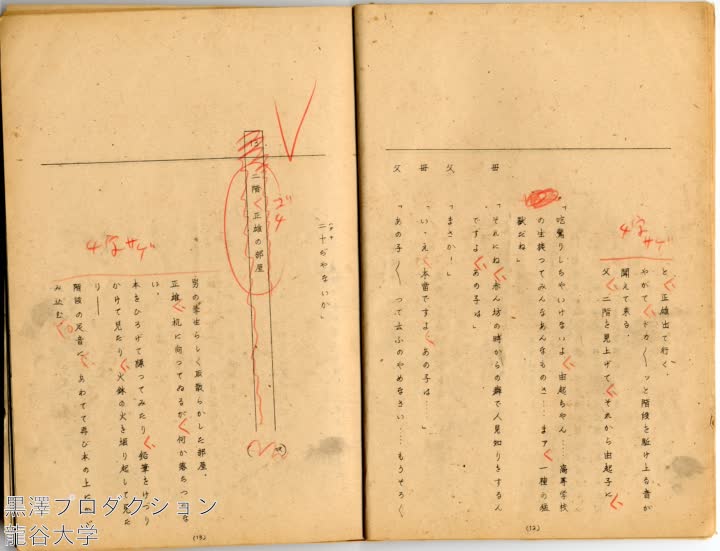 と、正雄出て行く。
やがて、ドカ〱ッと階段を駈け上る音が
聞えて来る。
父、二階を見上げて、それから由起子に、
「吃驚りしちやいけないよ、由起ちやん……高等学校
の生徒つてみんなあんなものさ……まァ、一種の猛
獣だね」
母「それにね、赤ん坊の時からの癖で人見知りをするん
ですよ、あの子は」
父「まさか！」
母「いゝえ、本当ですよ、あの子は……」
父「あの子〱つて云ふのやめなさい……もうそろ〱
4字サゲ
(12)
二十ぢやないか」
はたち
13
二階、正雄の部屋
ゴ4
4字サゲ
男の学生らしく取散らかした部屋。
正雄、机に向つてゐるが、何か落ちつかな
い。
本をひろげて讀つてみたり、鉛筆をけづり
かけて見たり、火鉢の火を堀り起して見た
り――
階段の足音に、あわてて再び本の上に
み止む。
(13)
黒澤プロダクション
龍谷大学